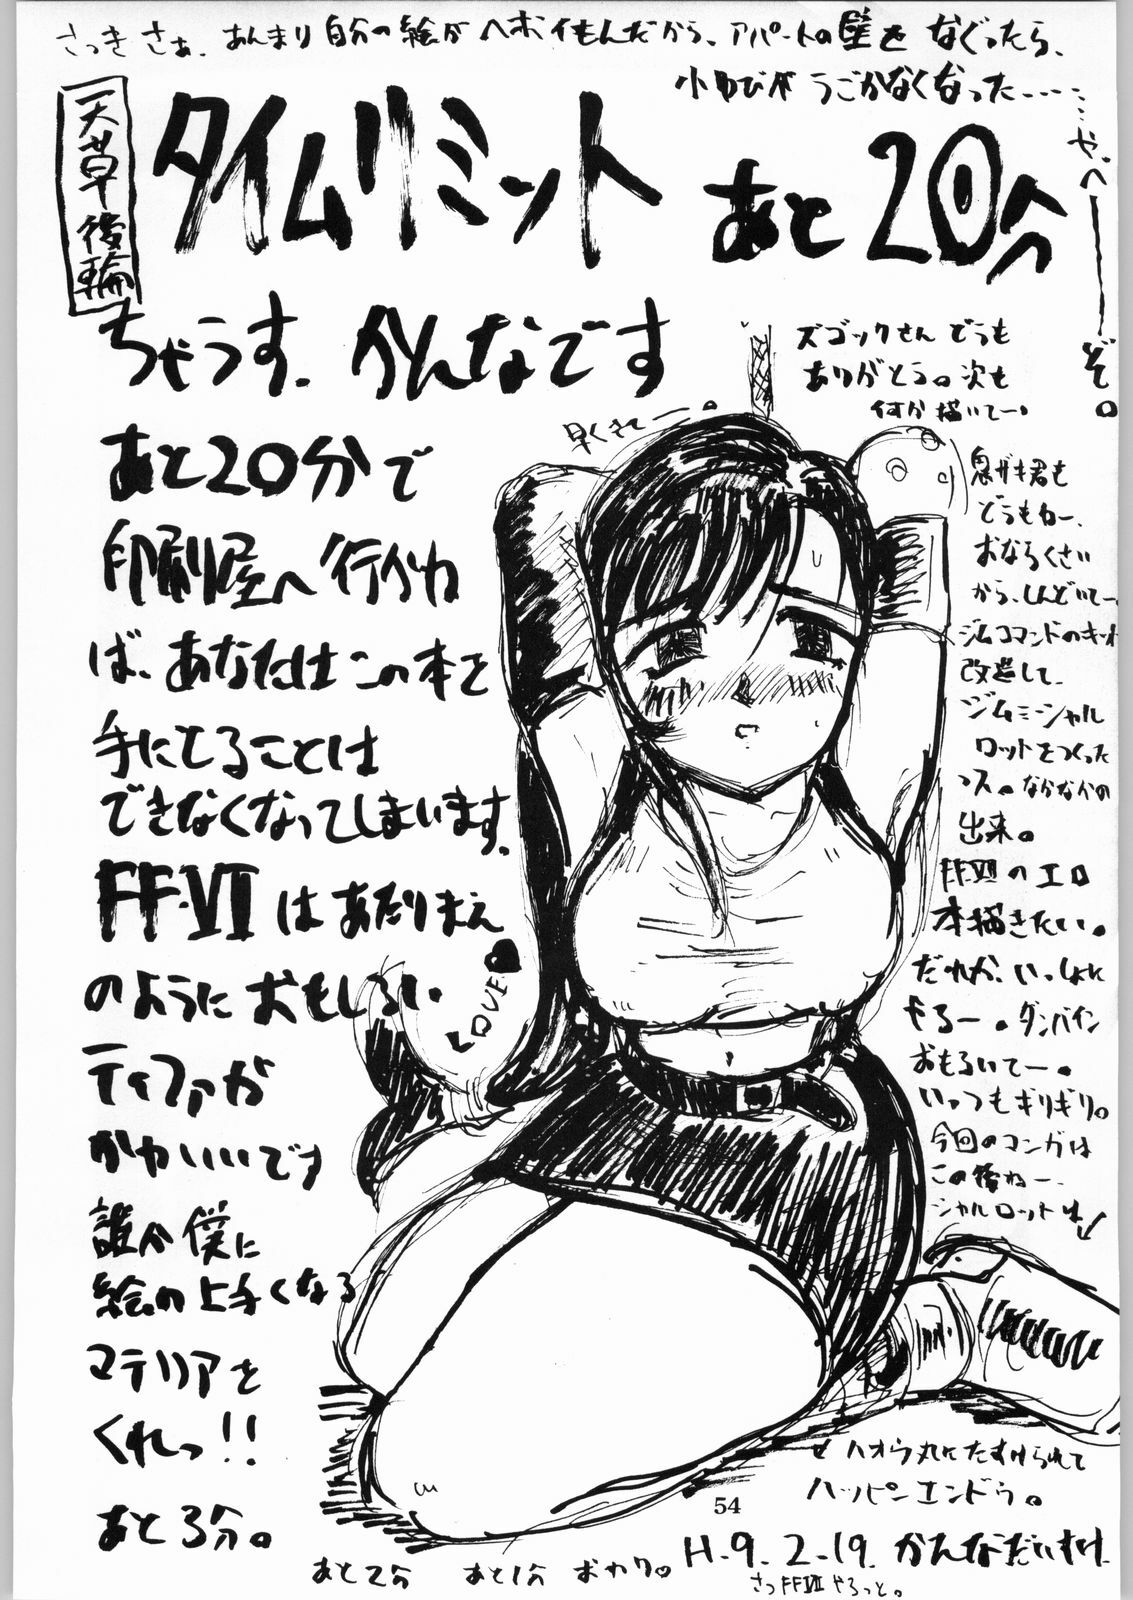 さっきさぁ、あんまり自分の絵がヘボイもんだから、アパートの壁をなぐったら、
小ゆびがうごかなくなった……
やべーーぞ。
天草後輪
タイムリミット あと20分
ちゃうす、かんなです
あと20分で
印刷屋へ行かね
ば、あなたはこの本を
手にてることは
できなくなってしまいます。
FF・VIIはあたりまえ
のようにおもしろい
ティファが
かわいいです
誰か僕に
絵の上手くなる
マテリアを
くれっ!!
あと3分。
あと2分 あと1分 おわり。
早くきてー。
LOVE
ズゴックさんどうも
ありがとう。次も
何か描いてー。
ガキ君も
どうもねー、
おならくさい
から、しんどいてー、
ジムコマンドのキット
改造して、
ジムミーシャル
ロットをつくった
っス。なかなかの
出来。
FFVIIのエロ
本描きたい。
だれか、いっしょに
やるー。ダンバイン
おもろいてー。
いっつもギリギリ。
今回のマンガは
この後ねー、
シャルロットは
ハオウ丸にたすけられて
ハッピンエンドゥ。
54
H.9.2.19. かんなだいすけ
さっFFVIIやろっと。